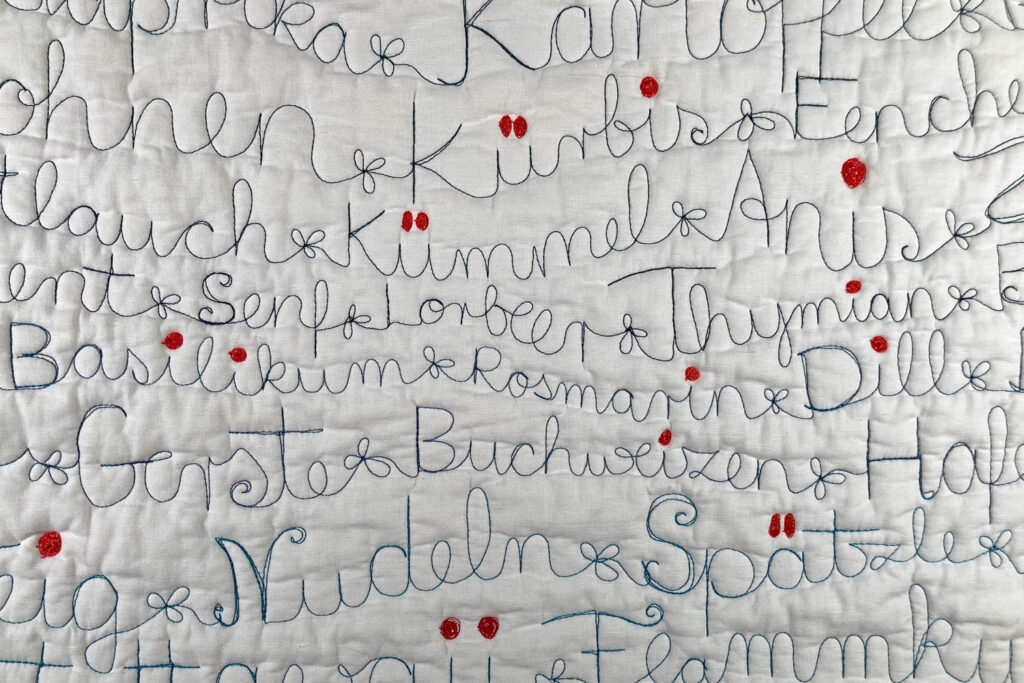 Paprika Kartoffel
ohnen Kürbis Fenche
tlauch Kümmel Anis
ent Senf Lorbeer Thymian
Basilikum Rosmarin Dill
Gerste Buchweizen Hafe
eig Nudeln Spätzle
Flammku